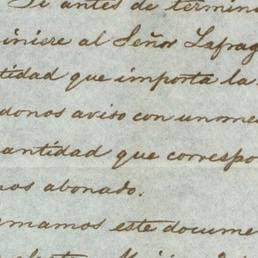 Si antes de termin
iniere al Señor Lafrag
tidad que importa la
donos aviso con un ome
antidad que correspo
os abonado.
rmamos este docume